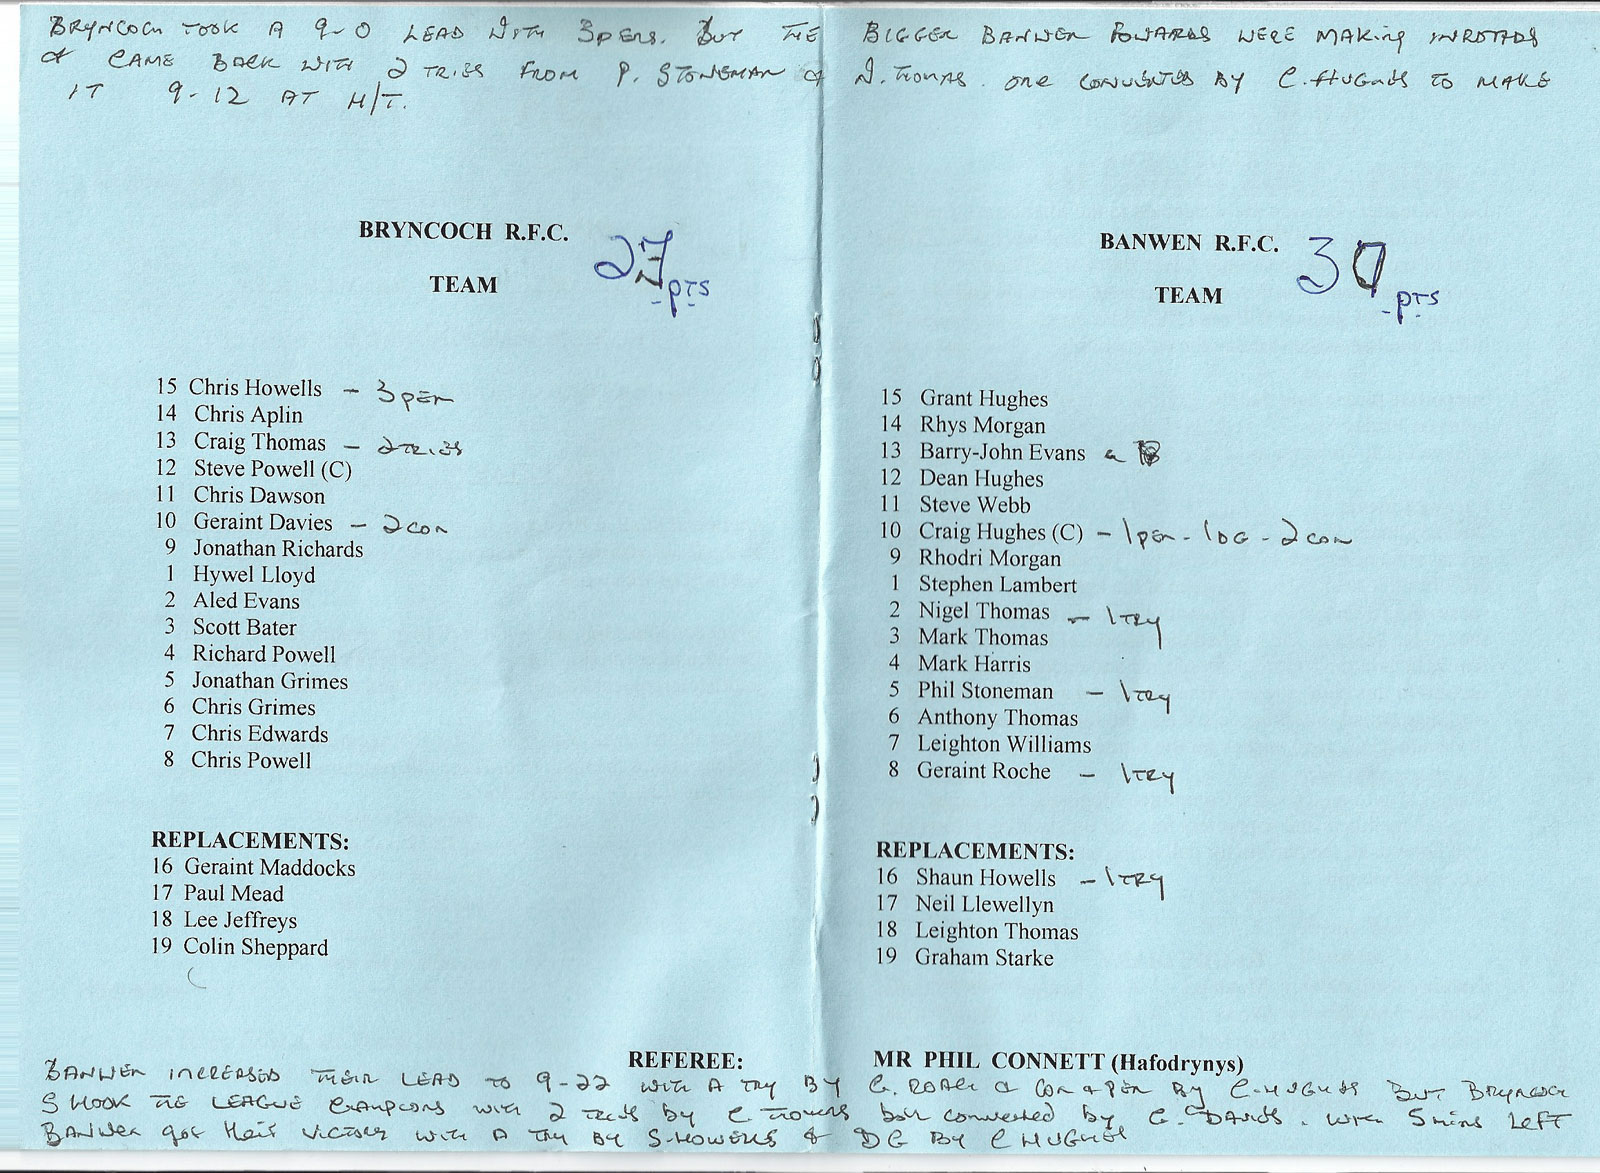 BRYNCOCH TOOK A 9-0 LEAD WITH 3 PENS. BUT THE BIGGER BANWEN FORWARDS WERE MAKING INROADS
& CAME BACK WITH 2 TRIES FROM P. STONEMAN & N. THOMAS. ONE CONVERTED BY C. HUGHES TO MAKE
IT 9-12 AT H/T.
BRYNCOCH R.F.C. 23
pts
TEAM
15 Chris Howells - 3 PEN
14 Chris Aplin
13 Craig Thomas - 2 TRIES
12 Steve Powell (C)
11 Chris Dawson
10 Geraint Davies - 2 CON
9 Jonathan Richards
1 Hywel Lloyd
2 Aled Evans
3 Scott Bater
4 Richard Powell
5 Jonathan Grimes
6 Chris Grimes
7 Chris Edwards
8 Chris Powell
REPLACEMENTS:
16 Geraint Maddocks
17 Paul Mead
18 Lee Jeffreys
19 Colin Sheppard
BANWEN R.F.C. 30
pts
TEAM
15 Grant Hughes
14 Rhys Morgan
13 Barry-John Evans
12 Dean Hughes
11 Steve Webb
10 Craig Hughes (C) - 1 PEN - 1 DG - 2 CON
9 Rhodri Morgan
1 Stephen Lambert
2 Nigel Thomas - 1 TRY
3 Mark Thomas
4 Mark Harris
5 Phil Stoneman - 1 TRY
6 Anthony Thomas
7 Leighton Williams
8 Geraint Roche - 1 TRY
REPLACEMENTS:
16 Shaun Howells - 1 TRY
17 Neil Llewellyn
18 Leighton Thomas
19 Graham Starke
REFEREE: MR PHIL CONNETT (Hafodrynys)
BANWEN INCREASED THEIR LEAD TO 9-22 WITH A TRY BY G. ROACH & CON & PEN BY C. HUGHES BUT BRYNCOCH
SHOOK THE LEAGUE CHAMPIONS WITH 2 TRIES BY C THOMAS both converted by G. DAVIES. WITH 5 mins LEFT
BANWEN got their victory WITH A TRY BY S. HOWELLS & DG BY C HUGHES